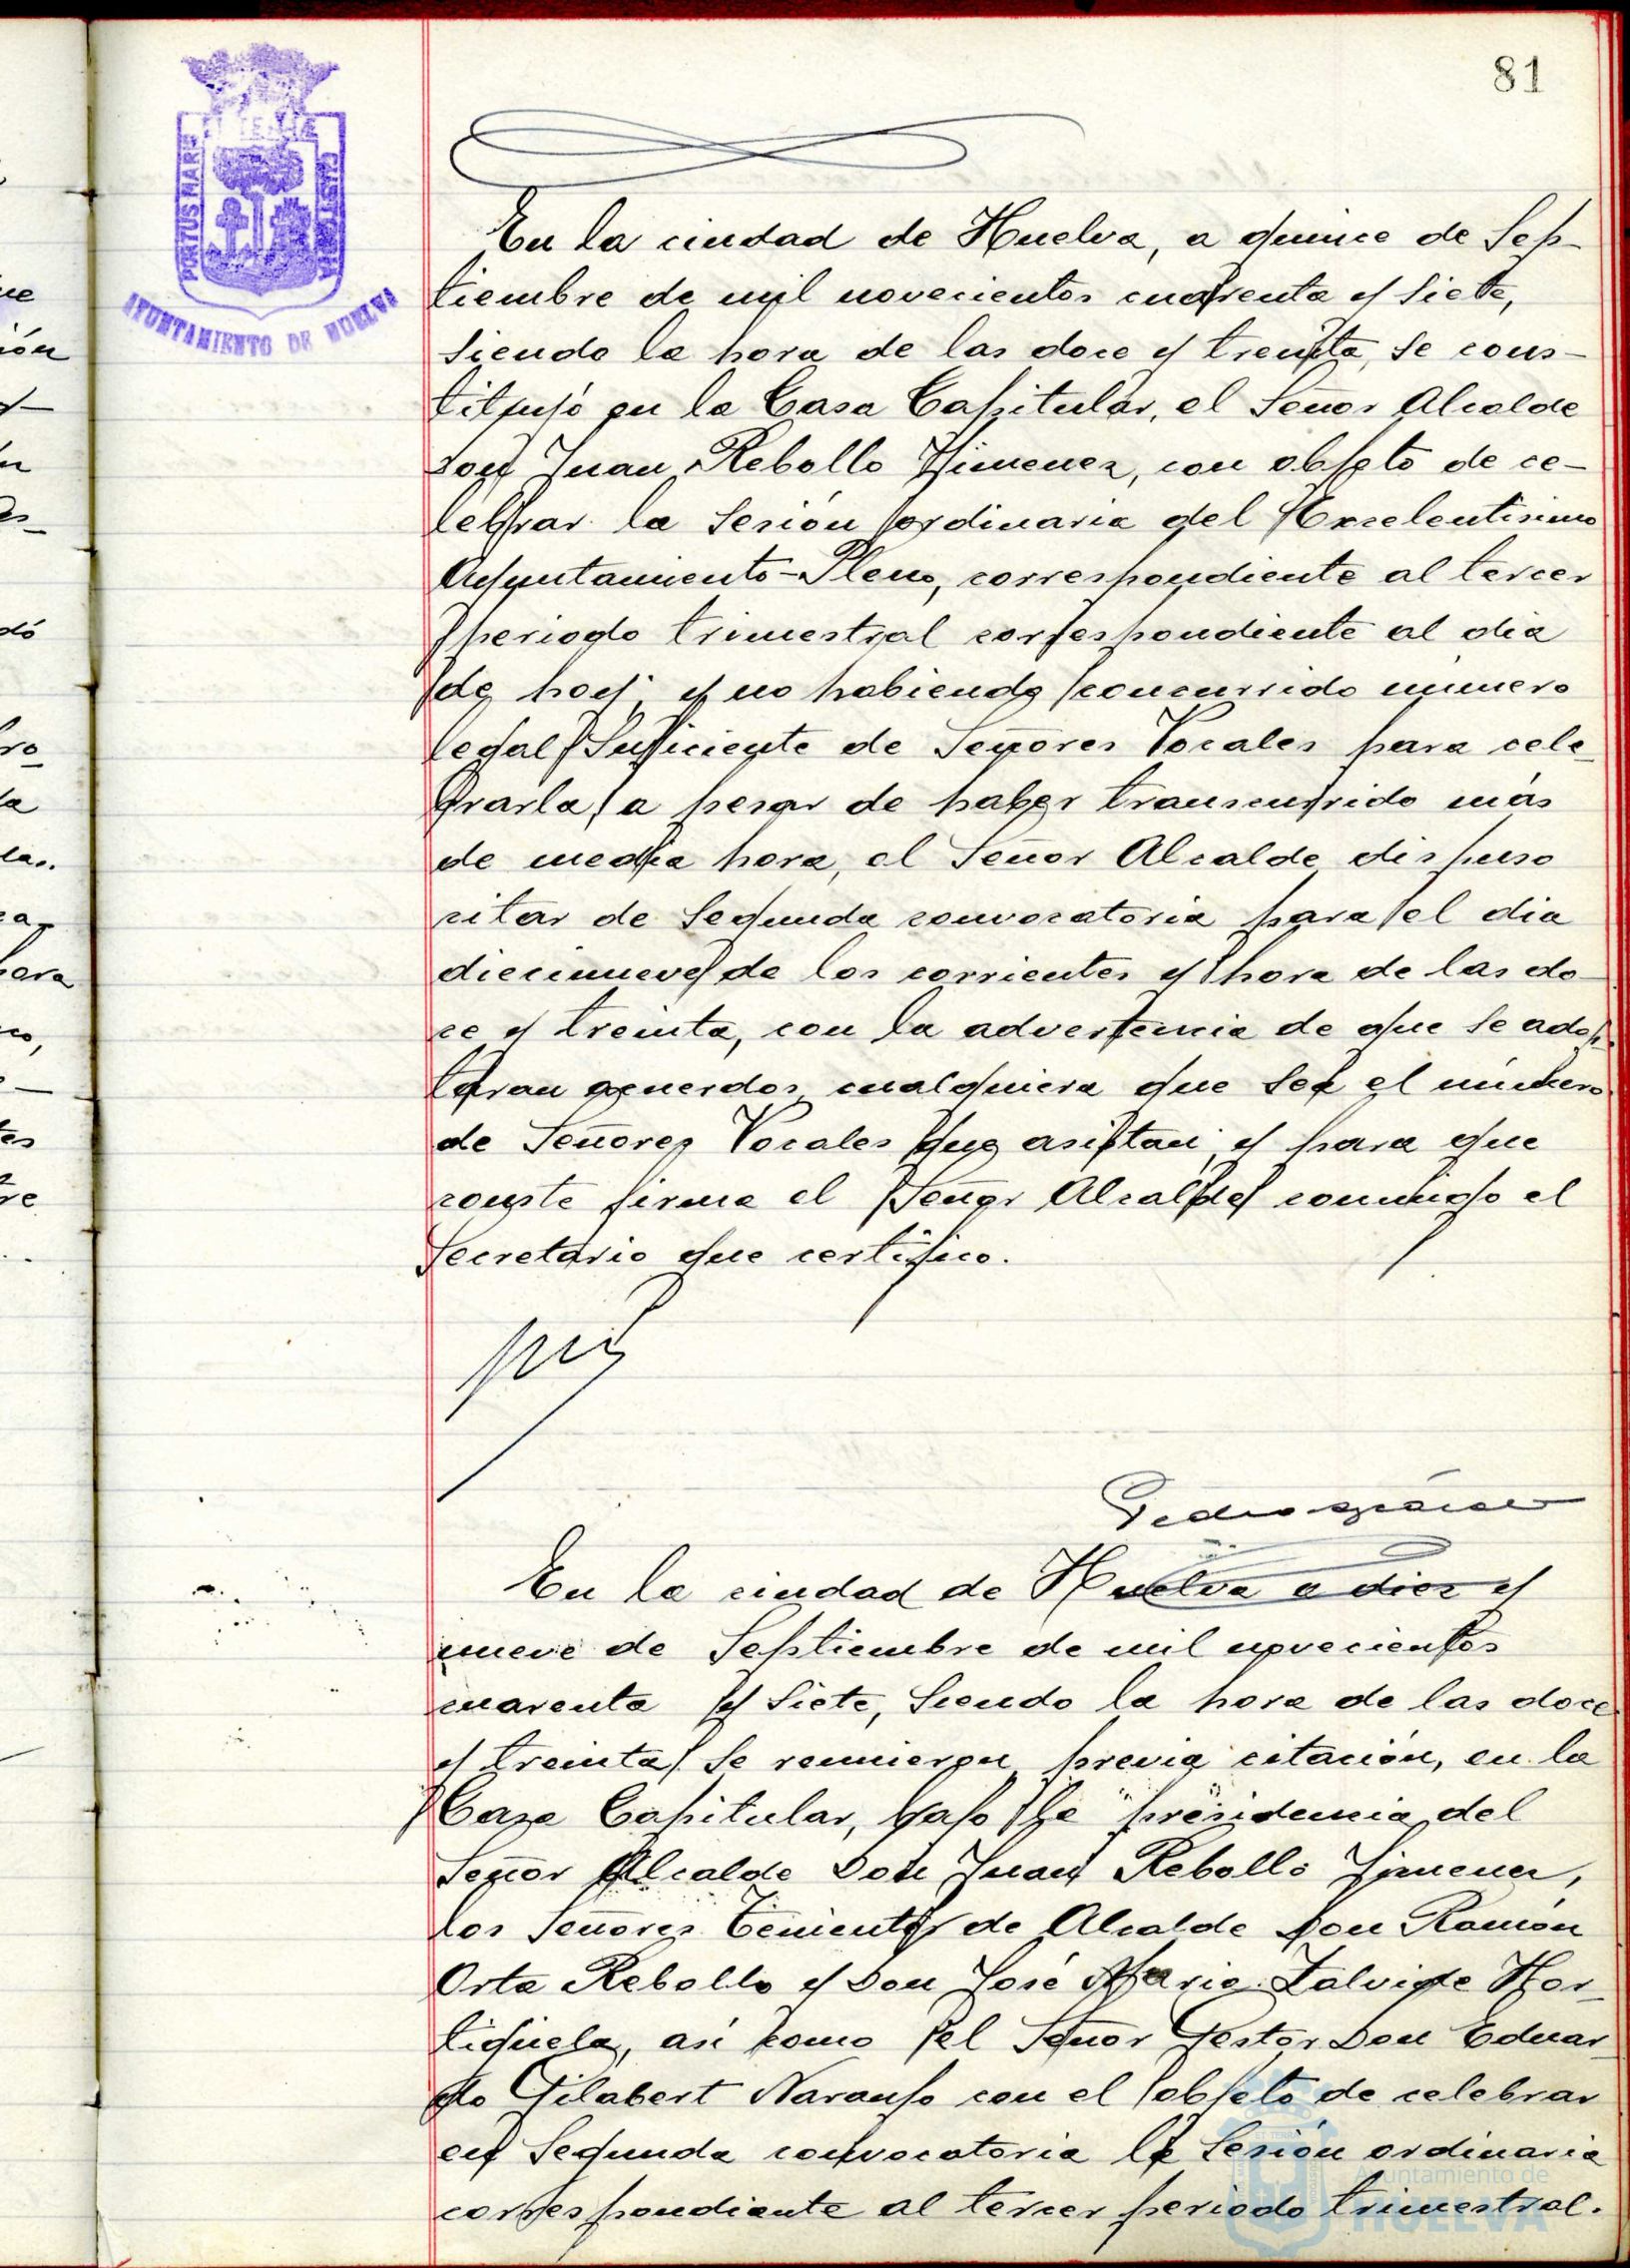 81
PORTUS MARIS
CUSTODIA
AYUNTAMIENTO DE HUELVA
En la ciudad de Huelva, a quince de Sep-
tiembre de mil novecientos cuarenta y siete,
siendo la hora de las doce y treinta, se cons-
tituyó en la Casa Capitular, el Señor Alcalde
don Juan Rebollo Jimenez, con objeto de ce-
lebrar la Sesión ordinaria del Excelentisimo
Ayuntamiento-Pleno, correspondiente al tercer
periodo trimestral correspondiente al dia
de hoy; y no habiendo concurrido número
legal suficiente de Señores Vocales para cele-
brarla, a pesar de haber transcurrido más
de media hora, el Señor Alcalde dispuso
citar de segunda convocatoria para el dia
diecinueve de los corrientes y hora de las do-
ce y treinta, con la advertencia de que se adop-
taran acuerdos cualquiera que sea el número
de Señores Vocales que asistan; y para que
conste firma el Señor Alcalde conmigo el
Secretario que certifico.
En la ciudad de Huelva a diez y
nueve de Septiembre de mil novecientos
cuarenta y siete, siendo la hora de las doce
y treinta, se reunieron, previa citación, en la
Casa Capitular, bajo la presidencia del
Señor Alcalde Don Juan Rebollo Jimenez,
los Señores Tenientes de Alcalde Don Ramón
Orta Rebollo y Don José Maria Zalvide Hor-
tigüela, asi como el Señor Gestor Don Eduar-
do Gilabert Naranjo con el objeto de celebrar
en segunda convocatoria la Sesión ordinaria
correspondiente al tercer periodo trimestral.
Ayuntamiento de
HUELVA